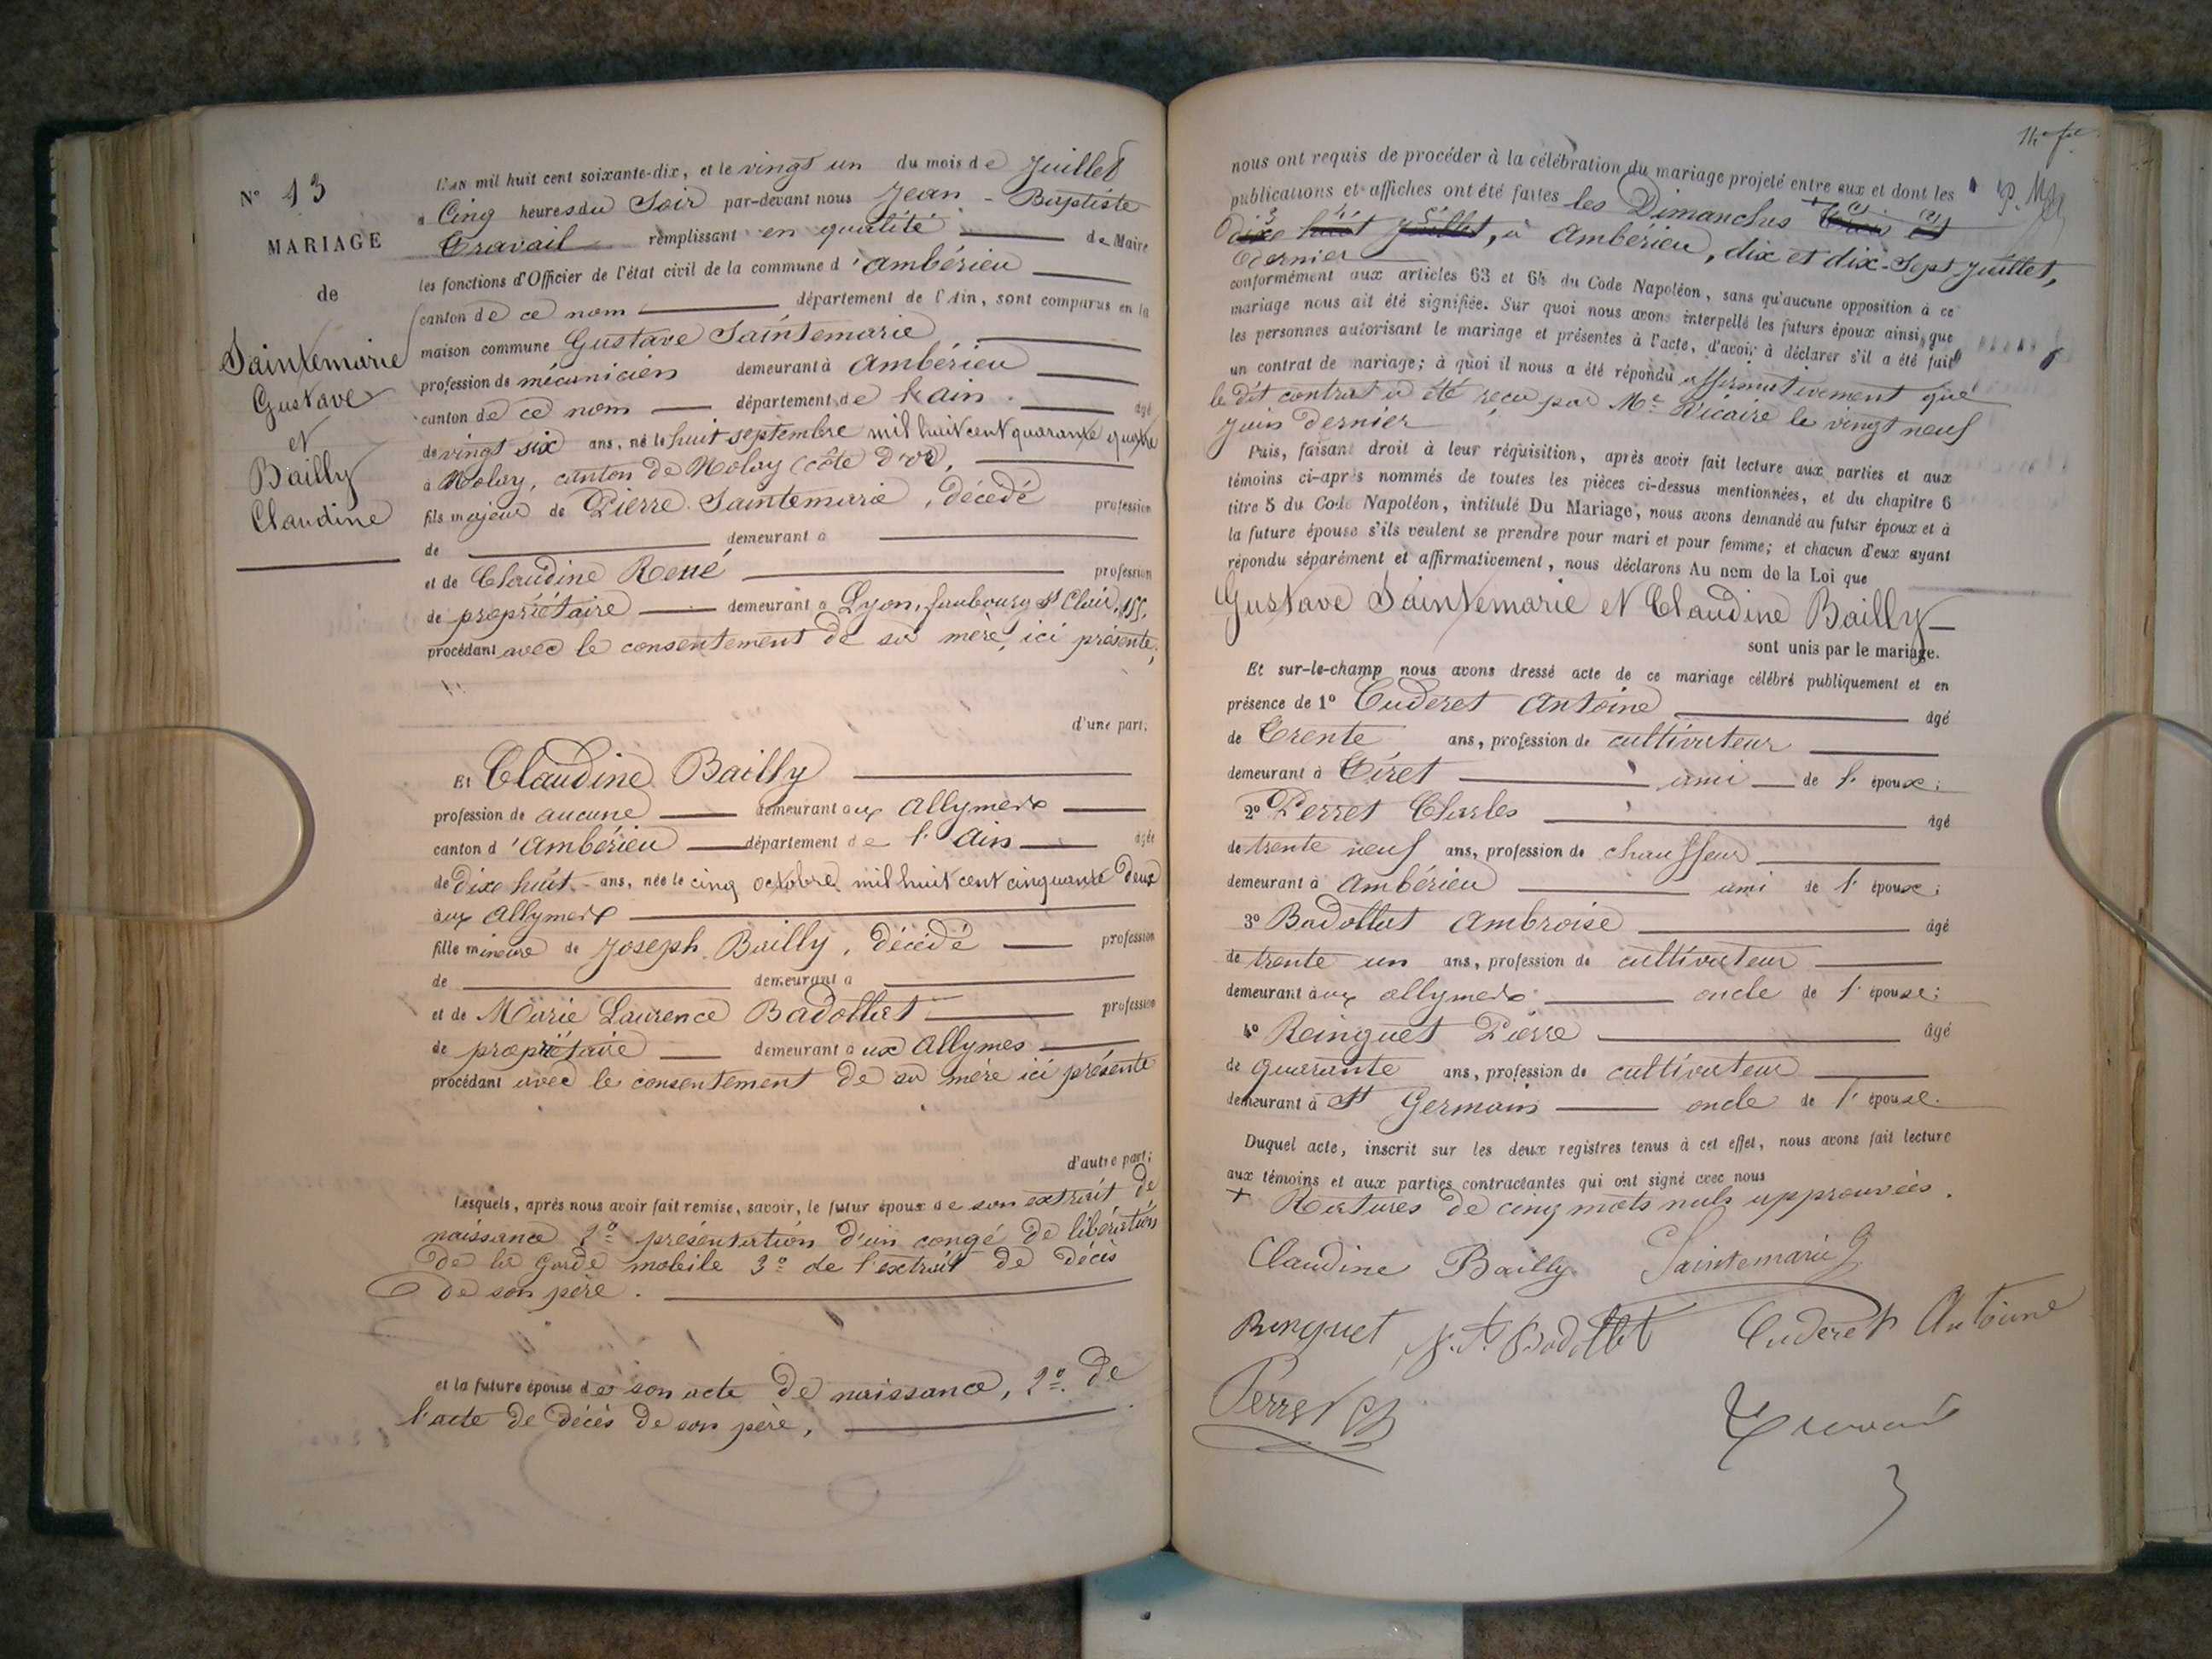 N° 13
MARIAGE
de
Saintemarie
Gustave
et
Bailly
Claudine
L'AN mil huit cent soixante-dix, et le vingt un du mois de Juillet
a Cinq heures du Soir par-devant nous Jean-Baptiste
Travail remplissant en qualité de Maire
les fonctions d'Officier de l'état civil de la commune d'Ambérieu
canton de ce nom département de l'Ain, sont comparus en la
maison commune Gustave Saintemarie
profession de mécanicien demeurant à Ambérieu
canton de ce nom département de l'ain âgé
de vingt six ans, né le huit septembre mil huit cent quarante quatre
à Nolay, canton de Nolay (côte d'or),
fils majeur de Pierre Saintemarie, décédé profession
de demeurant à
et de Claudine René profession
de propriétaire demeurant à Lyon, faubourg St Clair, 155,
procédant avec le consentement de sa mère, ici présente,
d'une part.
Et Claudine Bailly
profession de aucune demeurant aux Allymes
canton d'Ambérieu département de l'Ain âgée
de dixe huit ans, née le cinq octobre mil huit cent cinquante deux
aux Allymes
fille mineure de Joseph Bailly, décédé profession
de demeurant à
et de Marie Laurence Badollat profession
de propriétaire demeurant aux Allymes
procédant avec le consentement de sa mère ici présente
d'autre part;
Lesquels, après nous avoir fait remise, savoir, le futur époux de son extrait de
naissance 2° présentation d'un congé de libération
de la garde mobile 3° de l'extrait de décès
de son père.
et la future épouse de son acte de naissance, 2° de
l'acte de décès de son père,
nous ont requis de procéder à la célébration du mariage projeté entre eux et dont les
publications et affiches ont été faites les Dimanches
dixe huit Juillet, à Ambérieu, dix et dix-sept Juillet,
dernier
conformément aux articles 63 et 64 du Code Napoléon, sans qu'aucune opposition à ce
mariage nous ait été signifiée. Sur quoi nous avons interpellé les futurs époux ainsi que
les personnes autorisant le mariage et présentes à l'acte, d'avoir à déclarer s'il a été fait
un contrat de mariage; à quoi il nous a été répondu affirmativement que
le dit contrat a été reçu par Me Vicaire le vingt neuf
Juin dernier
Puis, faisant droit à leur réquisition, après avoir fait lecture aux parties et aux
témoins ci-après nommés de toutes les pièces ci-dessus mentionnées, et du chapitre 6
titre 5 du Code Napoléon, intitulé Du Mariage, nous avons demandé au futur époux et à
la future épouse s'ils veulent se prendre pour mari et pour femme; et chacun d'eux ayant
répondu séparément et affirmativement, nous déclarons Au nom de la Loi que
Gustave Saintemarie et Claudine Bailly
sont unis par le mariage.
Et sur-le-champ nous avons dressé acte de ce mariage célébré publiquement et en
présence de 1° Cuderet Antoine âgé
de trente ans, profession de cultivateur
demeurant à Tiret ami de l'époux;
2° Perret Charles âgé
de trente neuf ans, profession de chauffeur
demeurant à Ambérieu ami de l'époux;
3° Badollat Ambroise âgé
de trente un ans, profession de cultivateur
demeurant aux allymes oncle de l'épouse;
4° Reinguet Pierre âgé
de quarante ans, profession de cultivateur
demeurant à St Germain oncle de l'épouse.
Duquel acte, inscrit sur les deux registres tenus à cet effet, nous avons fait lecture
aux témoins et aux parties contractantes qui ont signé avec nous
+ Ratures de cinq mots nuls approuvées.
Claudine Bailly Saintemarie G
Renguet Badollat Cuderet Antoine
Perret Ch Travail